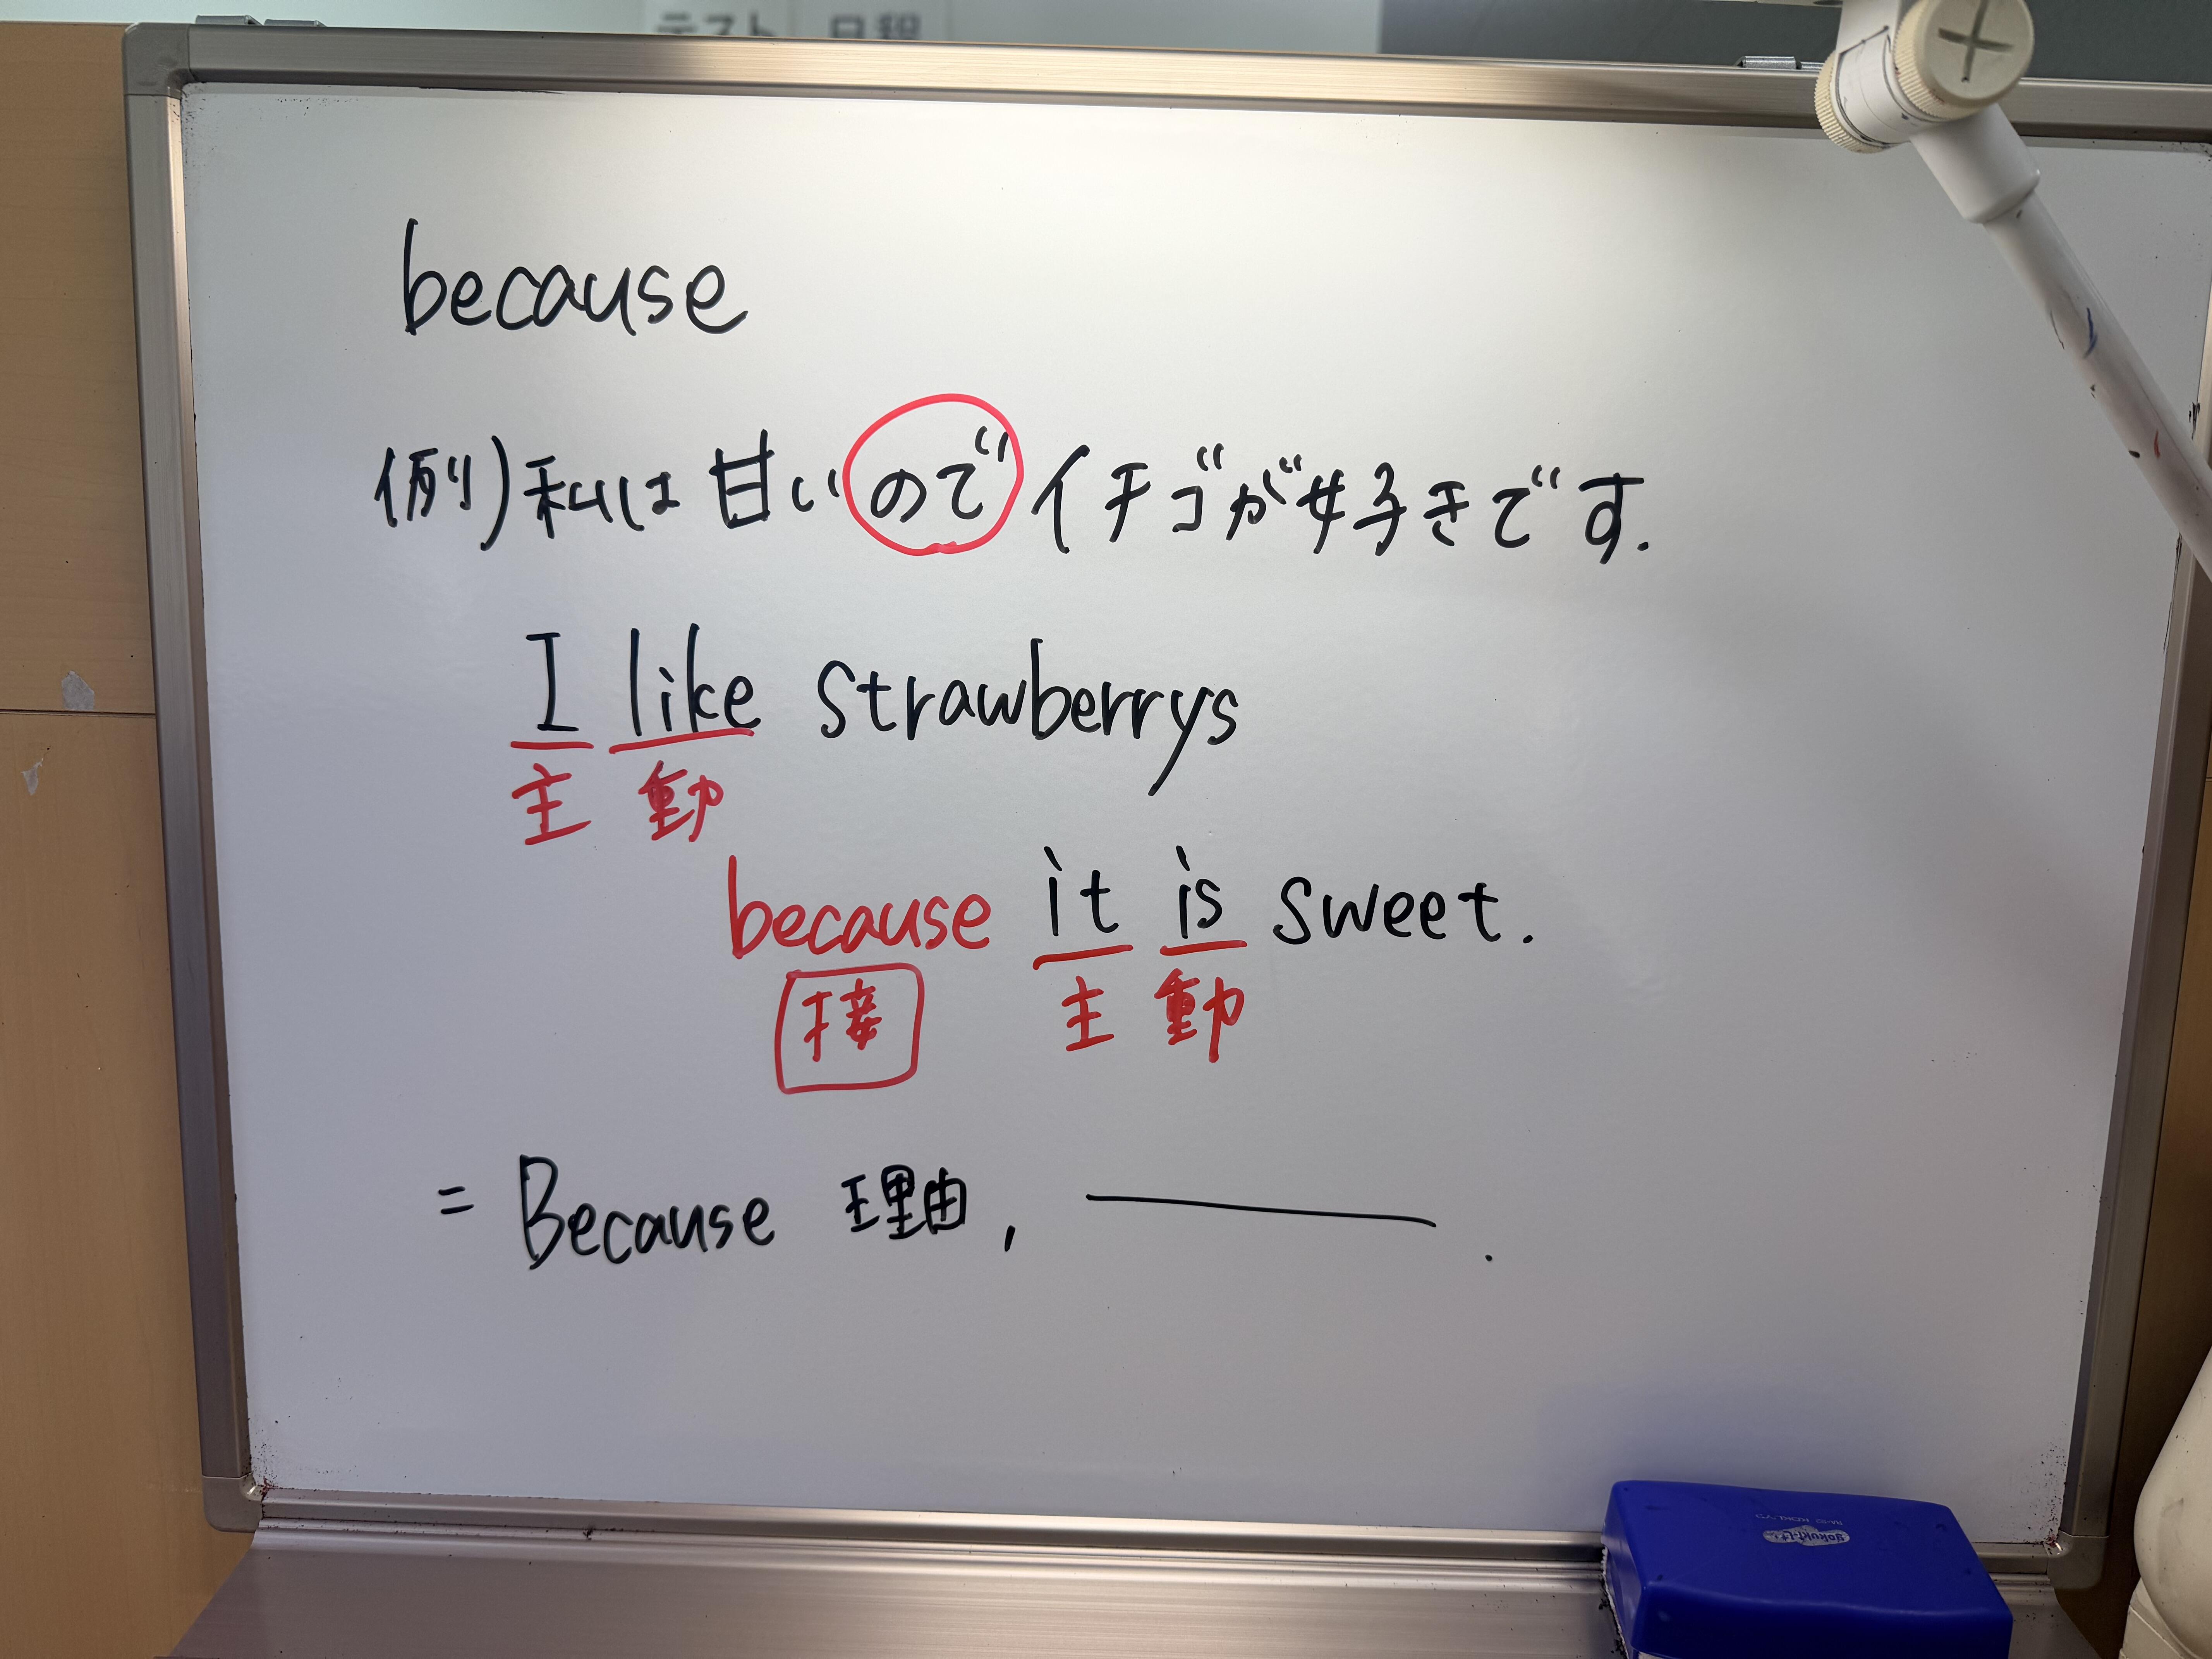 テスト 日程
because
例)私は甘いのでイチゴが好きです.
I like strawberrys
主 動
because it is sweet.
接 主 動
= Because 理由, .